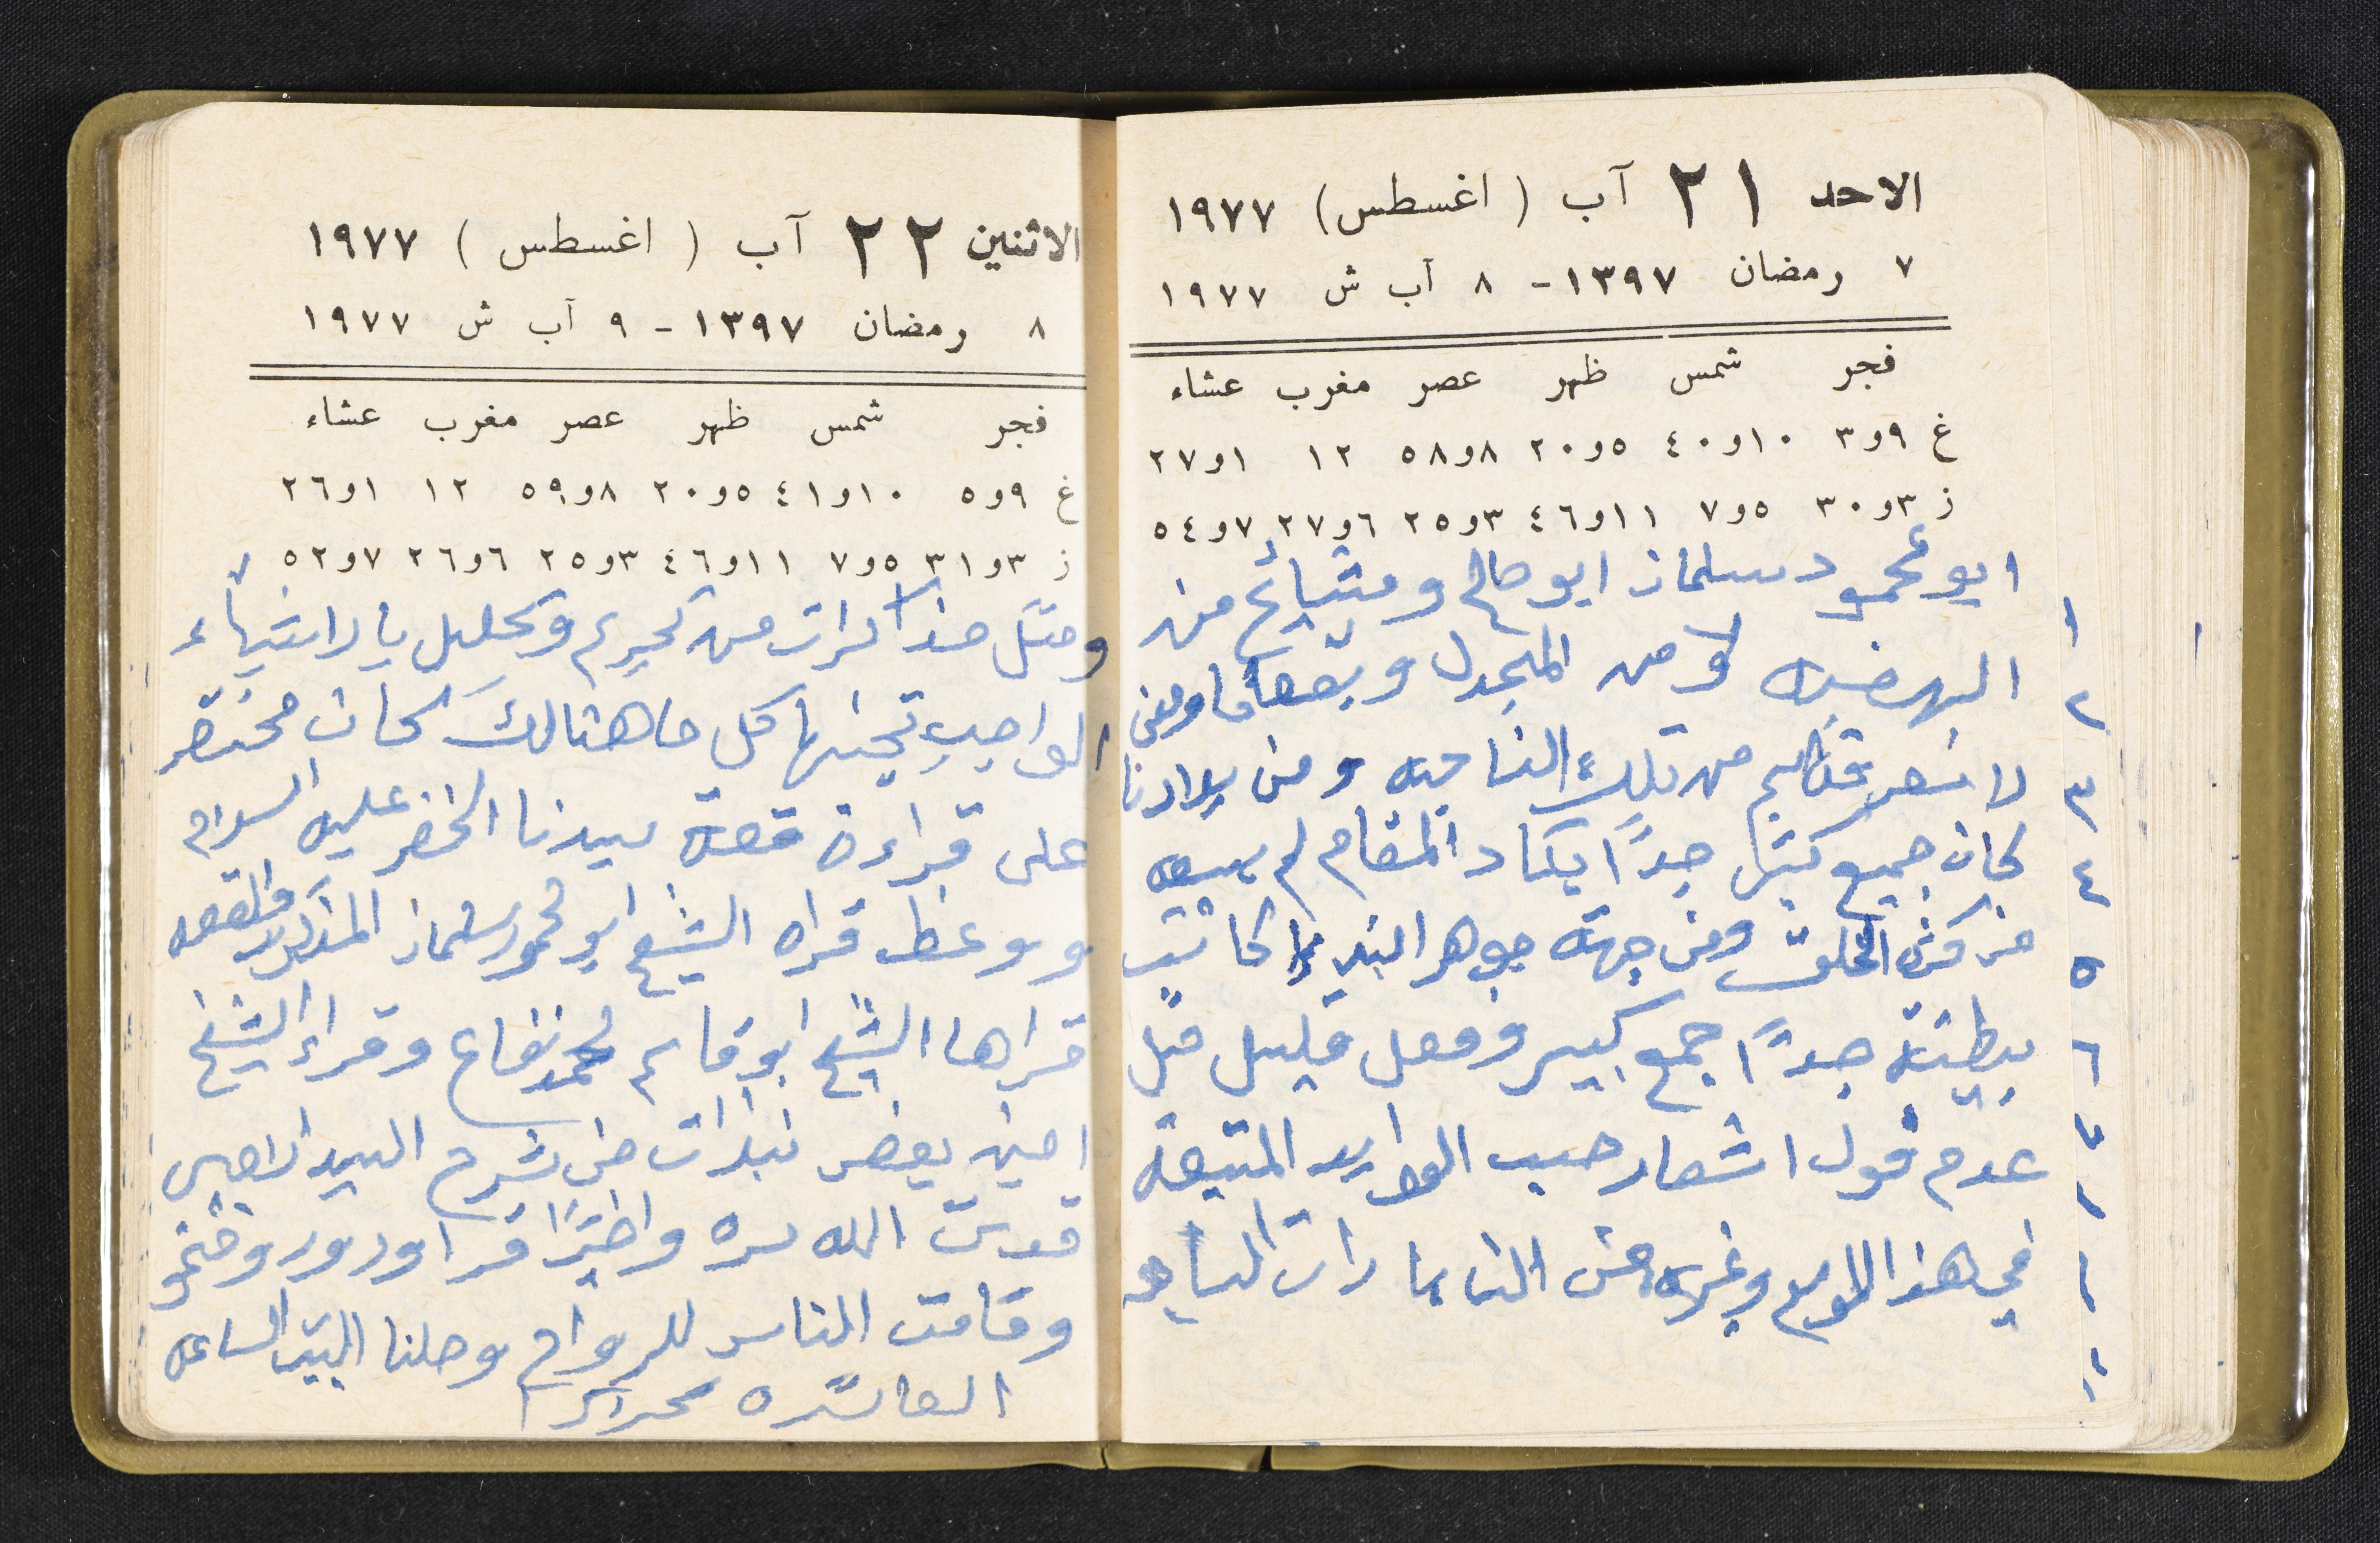 الاحد ٢١ آب ( اغسطس) ١٩٧٧
٧ رمضان ١٣٩٧ - ٨ آب ش ١٩٧٧
فجر شمس ظهر عصر مغرب عشاء
غ ٩و٣ ١٠و٤٠ ٥و٢٠ ٨و٥٨ ١٢ ١و٢٧
ز ٣و٣٠ ٥و٧ ١١و٤٦ ٣و٢٥ ٦و٢٧ ٧و٥٤
ابو محمود سلمان ابو صالح ومشايخ من
ومن المجدل وبقعاثا ومن
لا نعرفهم من تلك الناحيه ومن بلادنا
كان جميع كثير جداً يكاد المقام لم يسعه
من كثرة الخلق ومن جهة جوهر الندر كانت
بطيئة جداً جمع كبير وفعل قليل مثل
عدم قول اشعار حسب المتبعة
في هذا الموسم وغيره من
١
٢
٣
٤
٥
٦
الاثنين ٢٢ آب ( اغسطس ) ١٩٧٧
٨ رمضان ١٣٩٧ - ٩ آب ش ١٩٧٧
فجر شمس ظهر عصر مغرب عشاء
غ ٩و٥ ١٠و٤١ ٥و٢٠ ٨و٥٩ ١٢ ١و٢٦
ز ٣و٣١ ٥و٧ ١١و٤٦ ٣و٢٥ ٦و٢٦ ٧و٥٢
ومثل مذاكرات من تحريم وتحليل باراشياء
الواجب تجنبها كل ما هنالك كان مختصر
على قراءة قصة سيدنا الخضر عليه السلام
ووعظ قراه الشيخ ابو محمود سلمان المذكور والقصه
قراها الشيخ ابو قاسم محمد نفاع وقراء الشيخ
امين بعض نبذات من شرح السيد الامير
قدس الله سره واخيراً قرا ودور وختم
وقامت الناس للرواح وصلنا البيت الساعه
العاشره